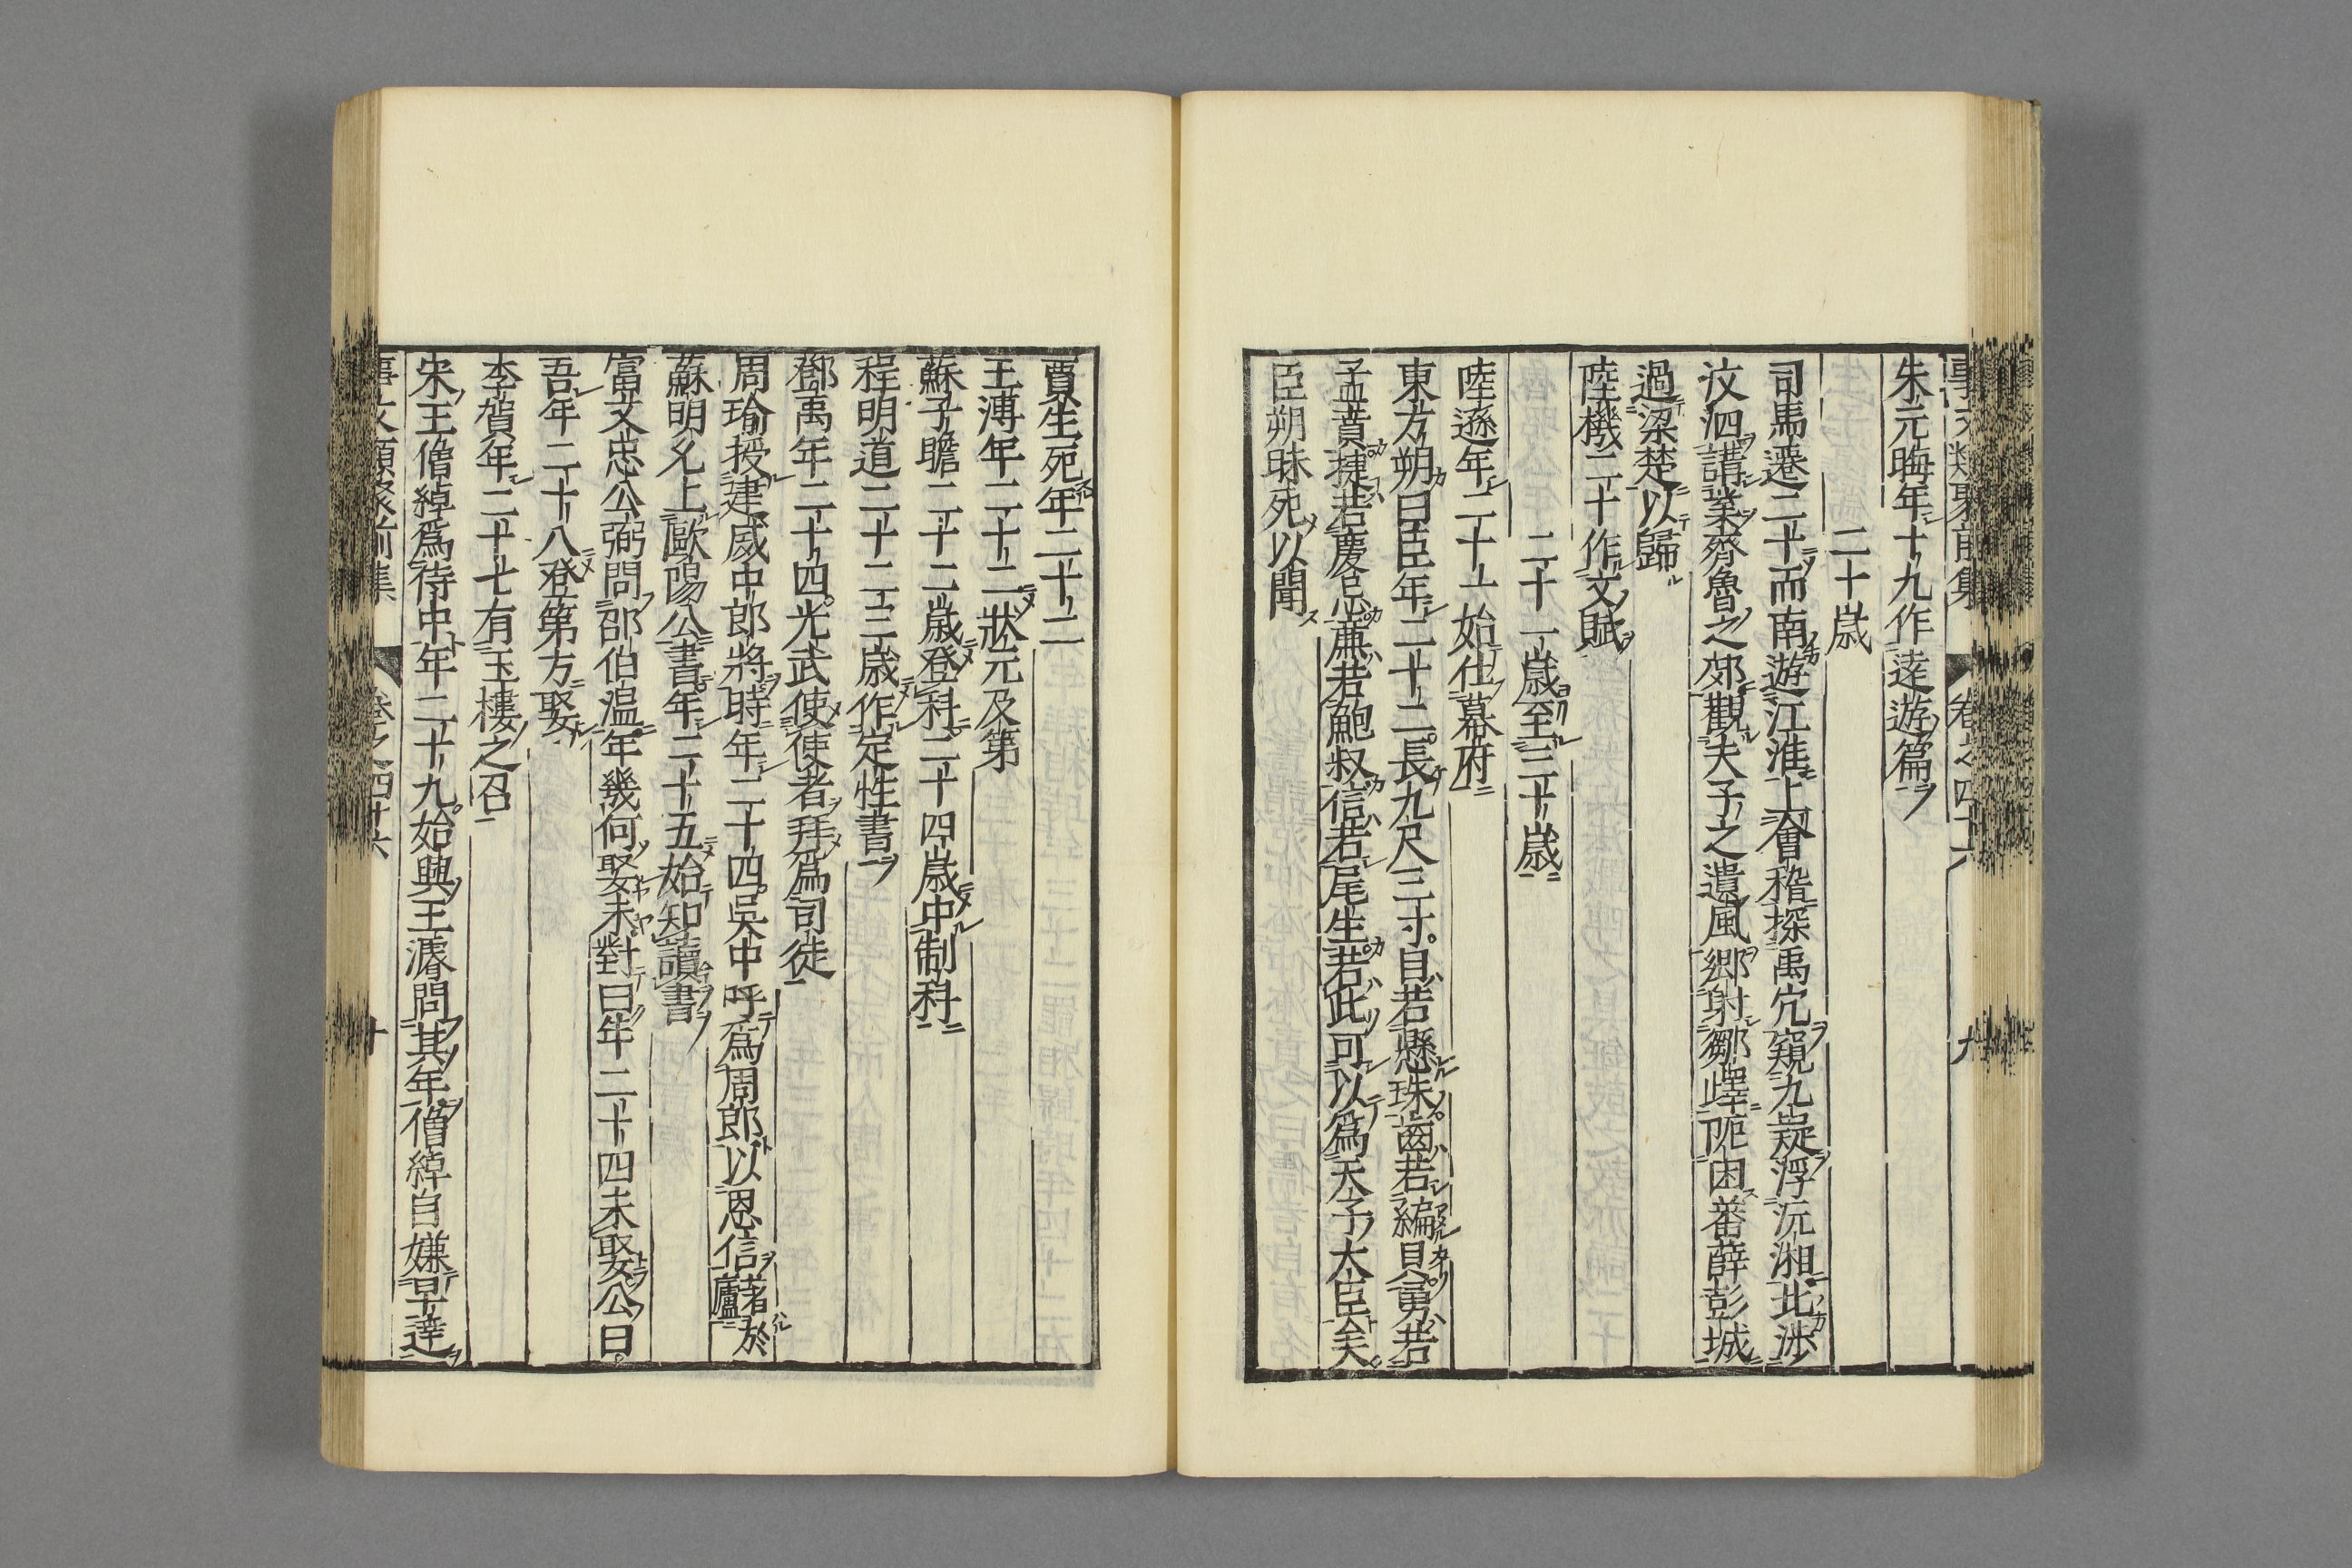 事文類聚前集 卷之四十六 九
朱元晦年十九作遠遊篇
二十歲
司馬遷二十而南遊江淮上會稽探禹穴窺九嶷浮沅湘北涉
汶泗講業齊魯之郊觀夫子之遺風鄉射鄒嶧阨困蕃薛彭城
過梁楚以歸
陸機二十作文賦
二十一歲至三十歲
陸遜年二十一始仕幕府
東方朔曰臣年二十二長九尺三寸目若懸珠齒若編貝勇若
孟賁捷若慶忌廉若鮑叔信若尾生若此可以爲天子大臣矣
臣朔昧死以聞
賈生死年二十二
王溥年二十二狀元及第
蘇子瞻二十二歲登科二十四歲中制科
程明道二十二三歲作定性書
鄧禹年二十四光武使使者拜爲司徒
周瑜授建威中郎將時年二十四吳中呼爲周郎以恩信著於廬
蘇明允上歐陽公書年二十五始知讀書
富文忠公弼問邵伯溫年幾何娶未對曰年二十四未娶公曰
吾年二十八登第方娶
李賀年二十七有玉樓之召
宋王僧綽爲侍中年二十九始興王濬問其年僧綽自嫌早達
事文類聚前集 卷之四十六 十